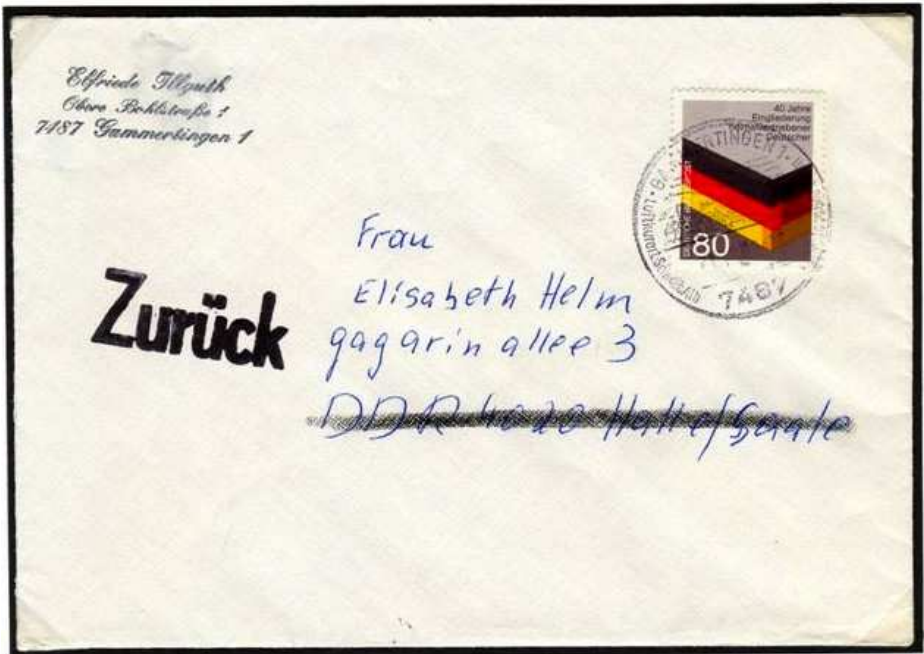 Elfriede Illguth
Obere Bohlstraße 1
7487 Gammertingen 1
40 Jahre
Eingliederung
heimatvertriebener
Deutscher
DEUTSCHE BUNDESPOST
80
GAMMERTINGEN 1
LUFTKURORT
7487
Frau
Elisabeth Helm
gagarinallee 3
DDR 4020 Halle/Saale
Zurück